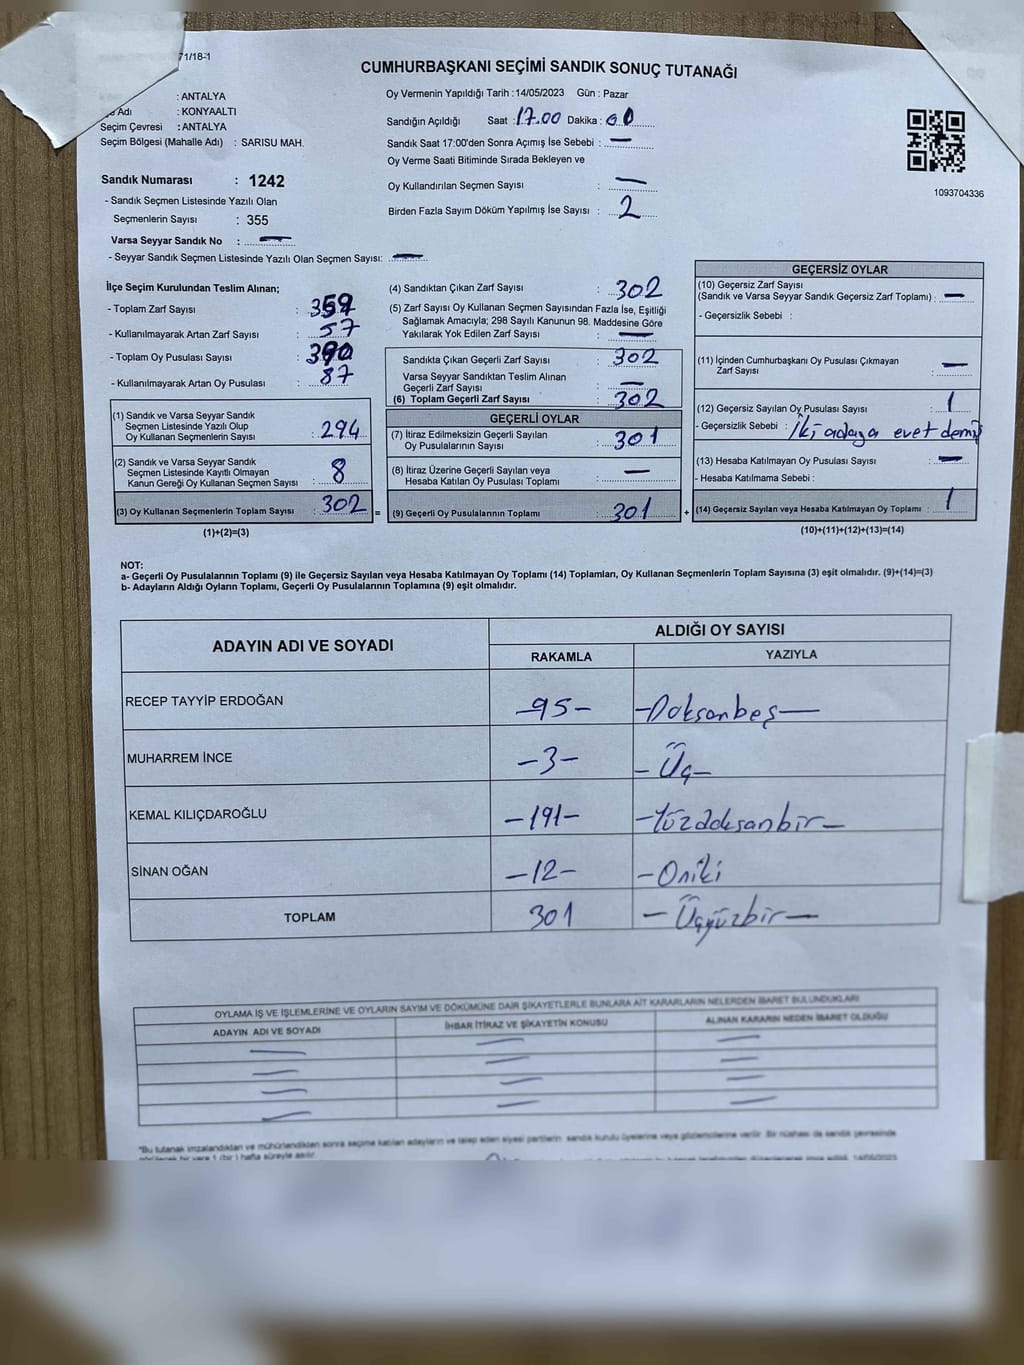 71/18-1
CUMHURBAŞKANI SEÇİMİ SANDIK SONUÇ TUTANAĞI
: ANTALYA
Adı : KONYAALTI
Seçim Çevresi : ANTALYA
Seçim Bölgesi (Mahalle Adı) : SARISU MAH.
Sandık Numarası : 1242
- Sandık Seçmen Listesinde Yazılı Olan
Seçmenlerin Sayısı : 355
Varsa Seyyar Sandık No : —
- Seyyar Sandık Seçmen Listesinde Yazılı Olan Seçmen Sayısı: —
Oy Vermenin Yapıldığı Tarih : 14/05/2023 Gün : Pazar
Sandığın Açıldığı Saat : 17.00 Dakika : 00
Sandık Saat 17:00'den Sonra Açımış İse Sebebi : —
Oy Verme Saati Bitiminde Sırada Bekleyen ve
Oy Kullandırılan Seçmen Sayısı : —
Birden Fazla Sayım Döküm Yapılmış İse Sayısı : 2
1093704336
İlçe Seçim Kurulundan Teslim Alınan;
- Toplam Zarf Sayısı : 359
- Kullanılmayarak Artan Zarf Sayısı : 57
- Toplam Oy Pusulası Sayısı : 390
- Kullanılmayarak Artan Oy Pusulası : 87
(1) Sandık ve Varsa Seyyar Sandık
Seçmen Listesinde Yazılı Olup
Oy Kullanan Seçmenlerin Sayısı : 294
(2) Sandık ve Varsa Seyyar Sandık
Seçmen Listesinde Kayıtlı Olmayan
Kanun Gereği Oy Kullanan Seçmen Sayısı : 8
(3) Oy Kullanan Seçmenlerin Toplam Sayısı : 302 =
(1)+(2)=(3)
(4) Sandıktan Çıkan Zarf Sayısı : 302
(5) Zarf Sayısı Oy Kullanan Seçmen Sayısından Fazla İse, Eşitliği
Sağlamak Amacıyla; 298 Sayılı Kanunun 98. Maddesine Göre
Yakılarak Yok Edilen Zarf Sayısı : —
Sandıkta Çıkan Geçerli Zarf Sayısı : 302
Varsa Seyyar Sandıktan Teslim Alınan
Geçerli Zarf Sayısı : —
(6) Toplam Geçerli Zarf Sayısı : 302
GEÇERLİ OYLAR
(7) İtiraz Edilmeksizin Geçerli Sayılan
Oy Pusulalarının Sayısı : 301
(8) İtiraz Üzerine Geçerli Sayılan veya
Hesaba Katılan Oy Pusulası Toplamı : —
(9) Geçerli Oy Pusulalarının Toplamı : 301 +
GEÇERSİZ OYLAR
(10) Geçersiz Zarf Sayısı
(Sandık ve Varsa Seyyar Sandık Geçersiz Zarf Toplamı) : —
- Geçersizlik Sebebi :
(11) İçinden Cumhurbaşkanı Oy Pusulası Çıkmayan
Zarf Sayısı : —
(12) Geçersiz Sayılan Oy Pusulası Sayısı : 1
- Geçersizlik Sebebi : İki adaya evet demiş
(13) Hesaba Katılmayan Oy Pusulası Sayısı : —
- Hesaba Katılmama Sebebi :
(14) Geçersiz Sayılan veya Hesaba Katılmayan Oy Toplamı : 1
(10)+(11)+(12)+(13)=(14)
NOT:
a- Geçerli Oy Pusulalarının Toplamı (9) ile Geçersiz Sayılan veya Hesaba Katılmayan Oy Toplamı (14) Toplamları, Oy Kullanan Seçmenlerin Toplam Sayısına (3) eşit olmalıdır. (9)+(14)=(3)
b- Adayların Aldığı Oyların Toplamı, Geçerli Oy Pusulalarının Toplamına (9) eşit olmalıdır.
ADAYIN ADI VE SOYADI ALDIĞI OY SAYISI
RAKAMLA YAZIYLA
RECEP TAYYİP ERDOĞAN -95- -Doksanbeş-
MUHARREM İNCE -3- -Üç-
KEMAL KILIÇDAROĞLU -191- -Yüzdoksanbir-
SİNAN OĞAN -12- -Oniki
TOPLAM 301 -Üçyüzbir-
OYLAMA İŞ VE İŞLEMLERİNE VE OYLARIN SAYIM VE DÖKÜMÜNE DAİR ŞİKAYETLERLE BUNLARA AİT KARARLARIN NELERDEN İBARET BULUNDUKLARI
ADAYIN ADI VE SOYADI İHBAR İTİRAZ VE ŞİKAYETİN KONUSU ALINAN KARARIN NEDEN İBARET OLDUĞU
*Bu tutanak imzalandıktan ve mühürlendikten sonra seçime katılan adayların ve talep eden siyasi partilerin sandık kurulu üyelerine veya gözlemcilerine verilir. Bir nüshası da sandık çevresinde
görülecek bir yere 1 (bir) hafta süreyle asılır.